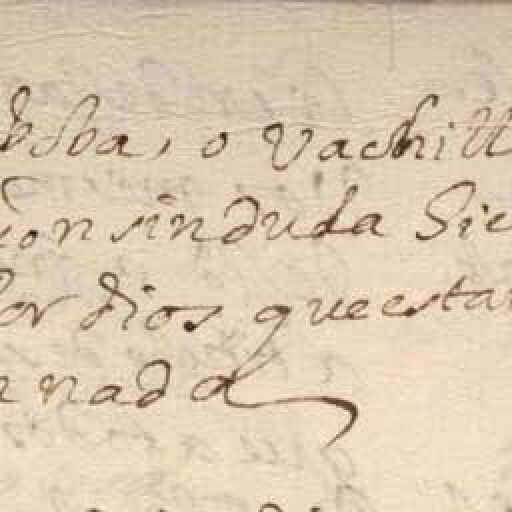 o vachill
on sin duda Sie
por dios que esta
nada